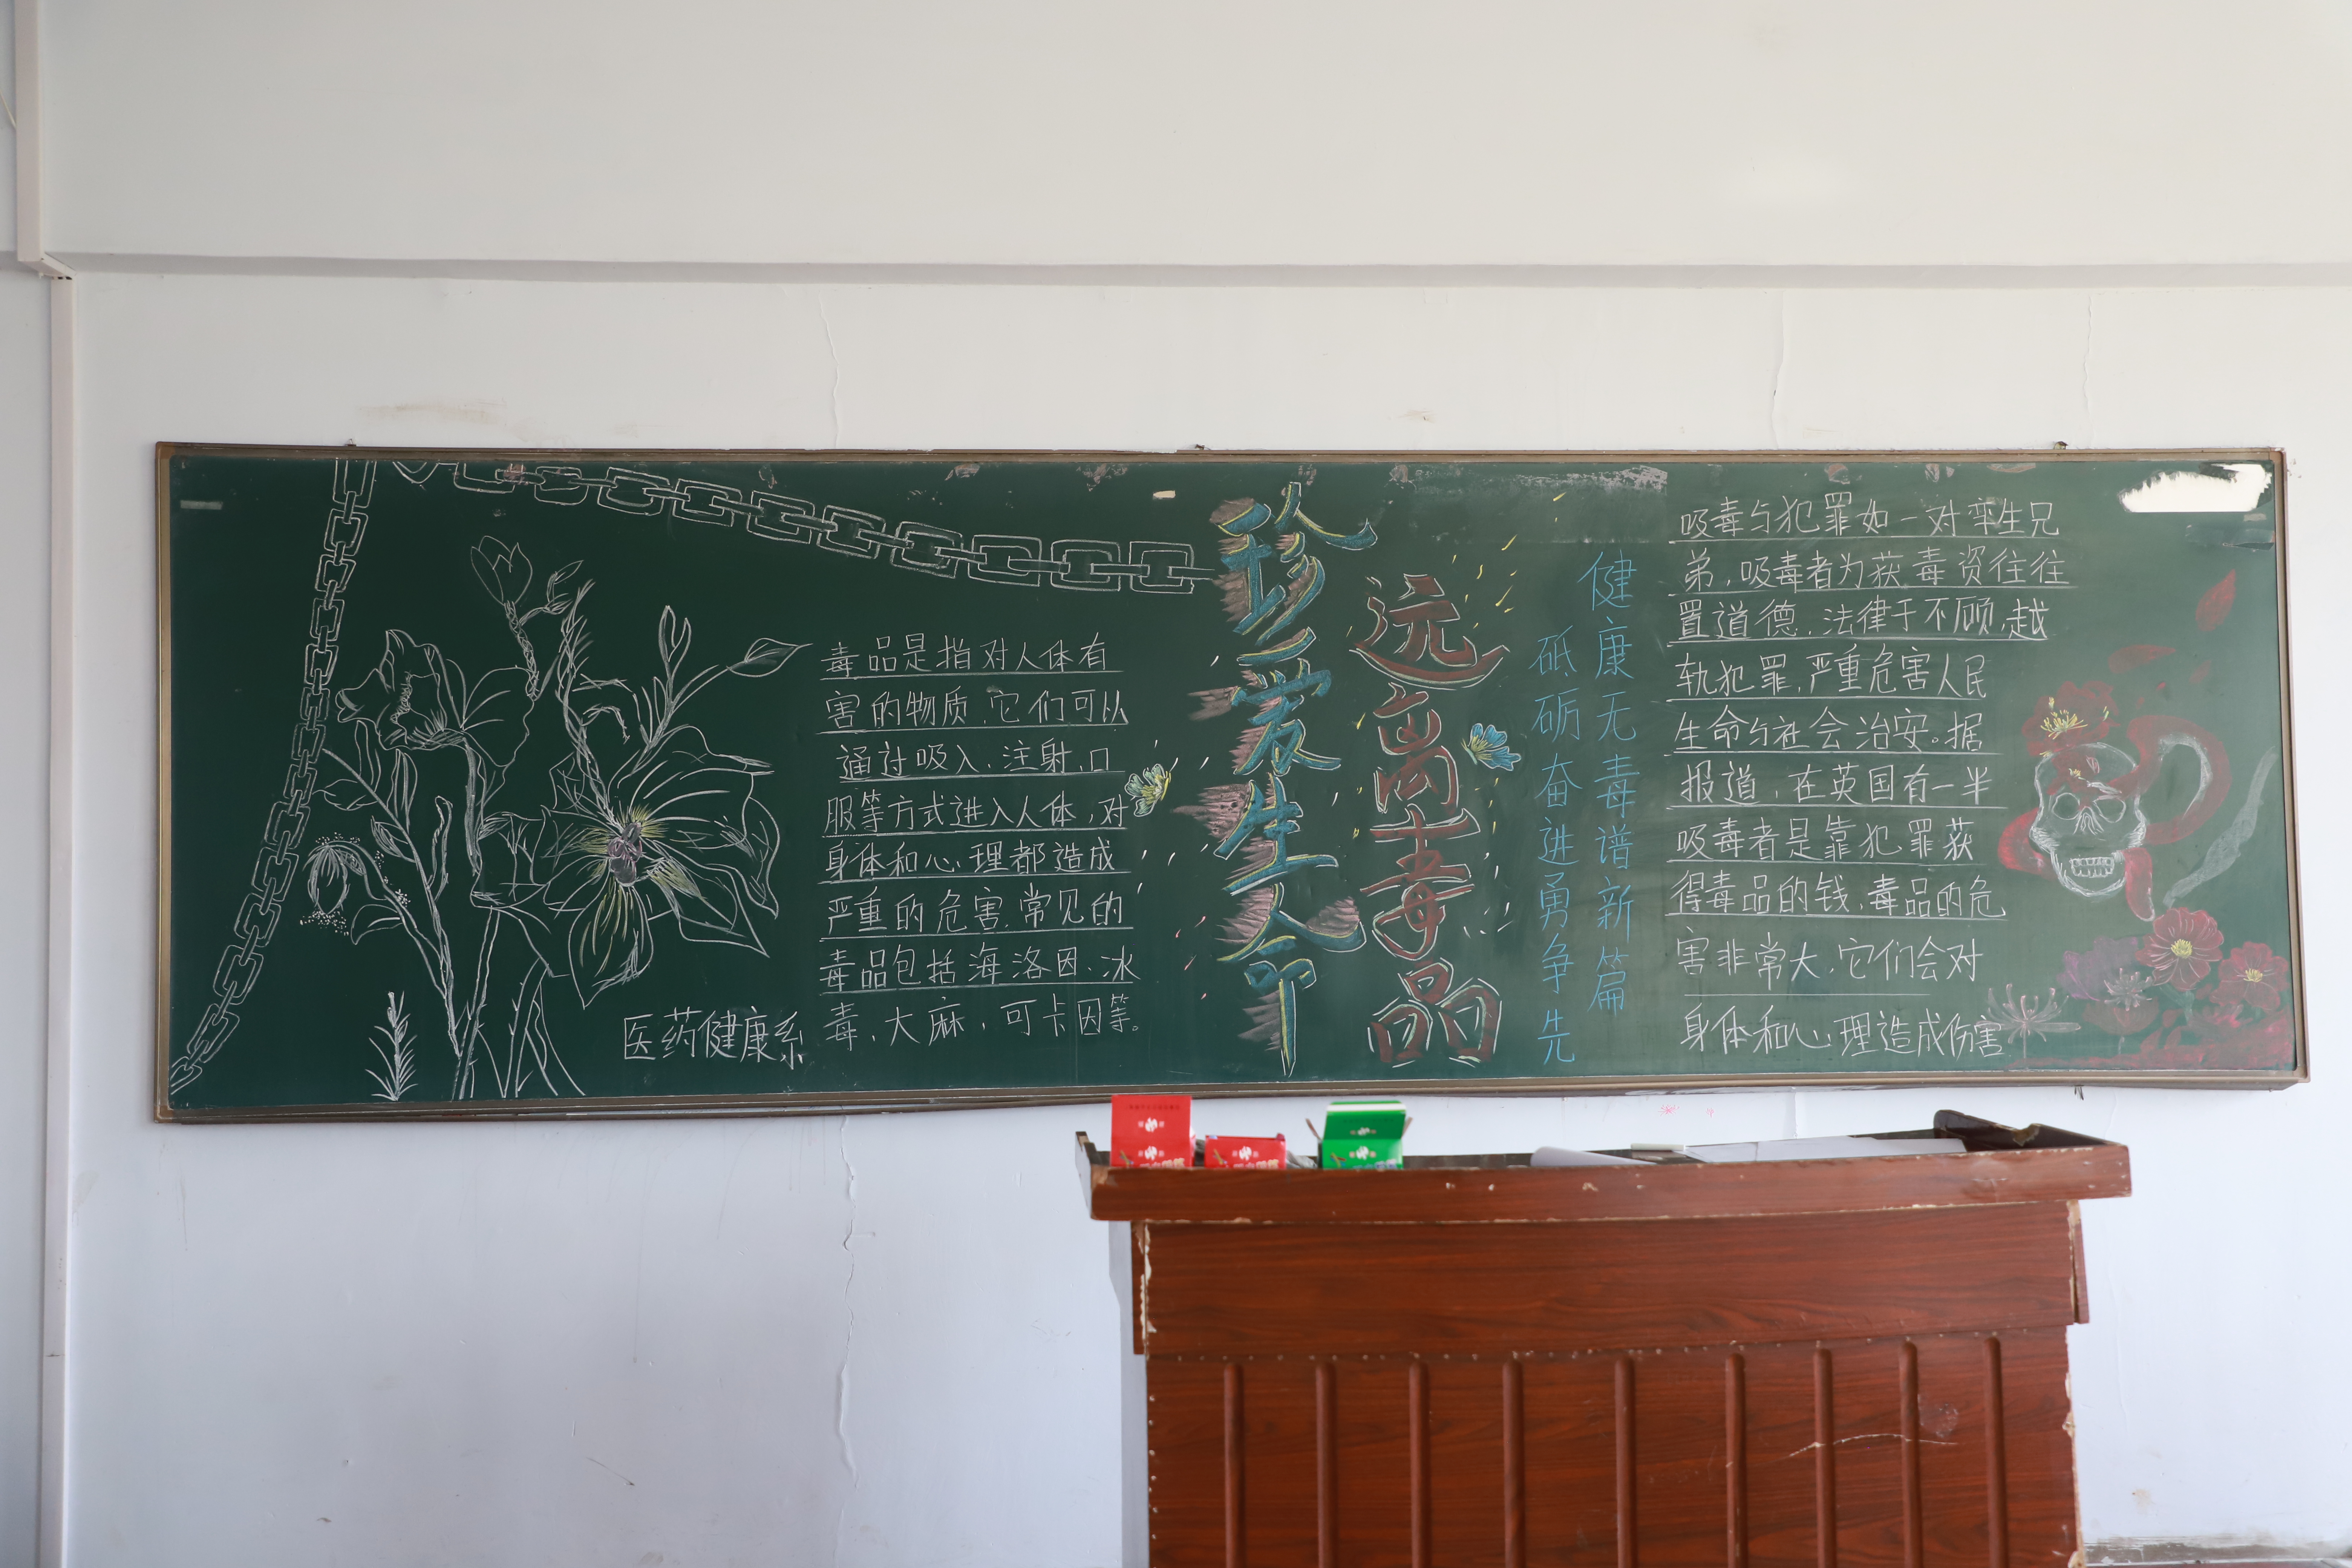 毒品是指对人体有
害的物质、它们可以
通过吸入、注射、口
服等方式进入人体，对
身体和心理都造成
严重的危害、常见的
毒品包括海洛因、冰
毒、大麻，可卡因等。
医药健康系
珍爱生命
远离毒品
健康无毒谱新篇
砥砺奋进勇争先
吸毒与犯罪如一对孪生兄
弟，吸毒者为获毒资往往
置道德、法律于不顾、越
轨犯罪，严重危害人民
生命与社会治安。据
报道，在英国有一半
吸毒者是靠犯罪获
得毒品的钱，毒品的危
害非常大，它们会对
身体和心理造成伤害